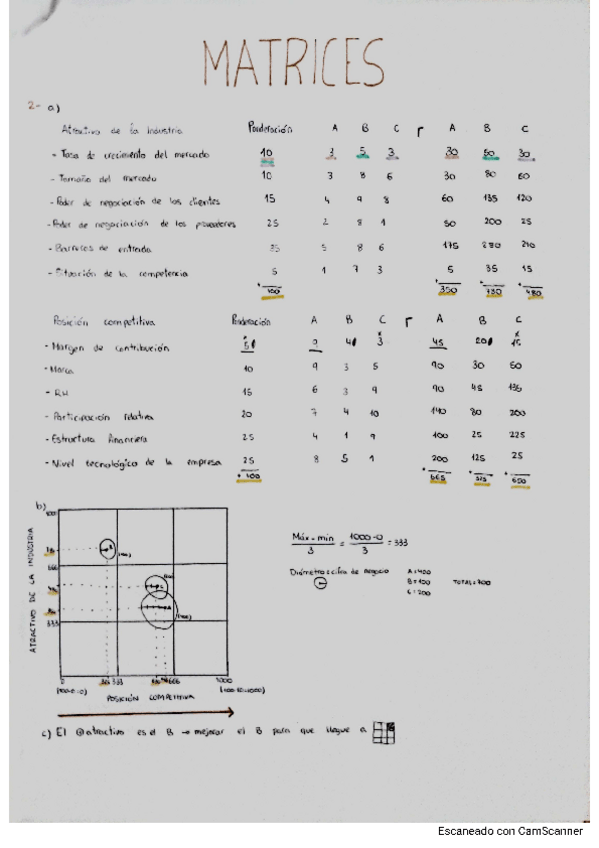 MATRICES
2- a)
Atractivo de la Industria Ponderación A B C r A B C
- Tasa de crecimiento del mercado 10 3 5 3 30 50 30
- Tamaño del mercado 10 3 8 6 30 80 60
- Poder de negociación de los clientes 15 4 9 8 60 135 120
- Poder de negociación de los proveedores 25 2 8 1 50 200 25
- Barreras de entrada 35 5 8 6 175 280 210
- Situación de la competencia 5 1 7 3 5 35 15
+ 100 + 350 + 780 + 480
Posición competitiva Ponderación A B C r A B C
- Margen de contribución 5 9 4 3 45 20 15
- Marca 10 9 3 5 90 30 50
- RH 15 6 3 9 90 45 135
- Participación relativa 20 7 4 10 140 80 200
- Estructura financiera 25 4 1 9 100 25 225
- Nivel tecnológico de la empresa 25 8 5 1 200 125 25
+ 100 + 665 + 325 + 650
b)
ATRACTIVO DE LA INDUSTRIA
1000
666
333
0 333 666 1000
(100·10=1000)
POSICIÓN COMPETITIVA
Máx - mín / 3 = 1000-0 / 3 = 333
Diámetro = cifra de negocio A = 400
B = 100 TOTAL = 700
C = 200
c) El atractivo es el B → mejorar el B para que llegue a
Escaneado con CamScanner